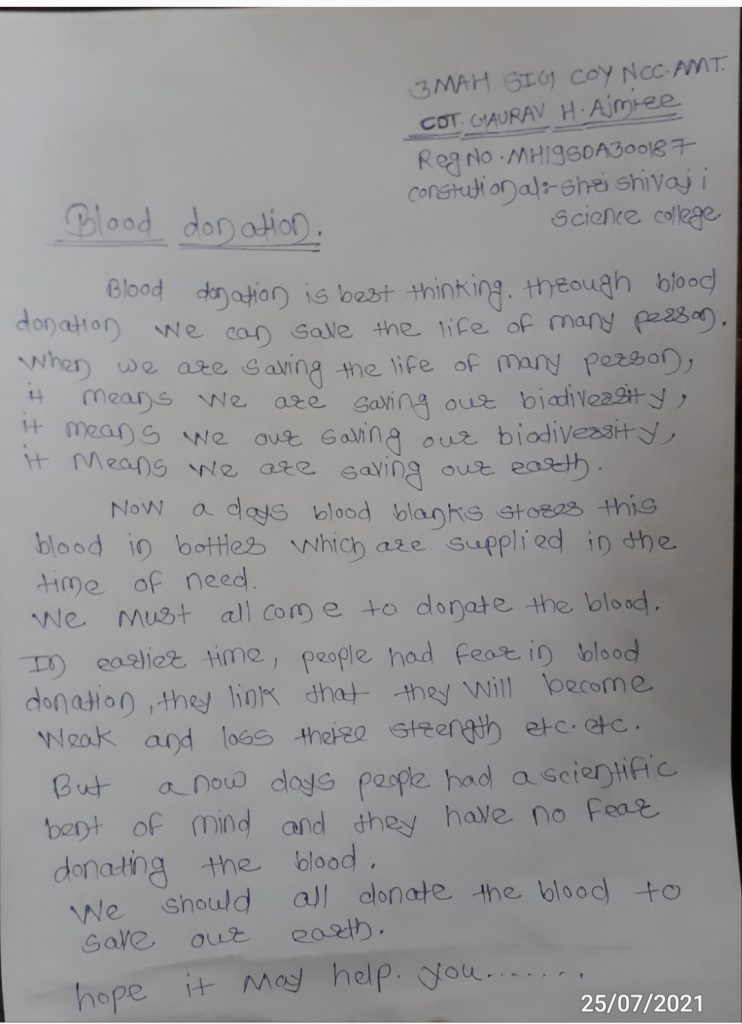 3MAH SIG COY NCC.AMT.
CDT. GAURAV H. Ajmire
Reg No. MH19SDA300187
constutional:- shri shivaji
science college.
Blood donation.
Blood donation is best thinking. through blood
donation we can save the life of many person.
When we are saving the life of many person,
it means we are saving our biodiversity,
it means we our saving our biodiversity,
it Means we are saving our earth.
Now a days blood blanks stores this
blood in bottles which are supplied in the
time of need.
We Must all come to donate the blood.
In earlier time, people had fear in blood
donation, they link that they will become
Weak and loss theire strength etc. etc.
But a now days people had a scientific
bent of mind and they have no fear
donating the blood.
We should all donate the blood to
save our earth.
hope it May help. you.......
25/07/2021